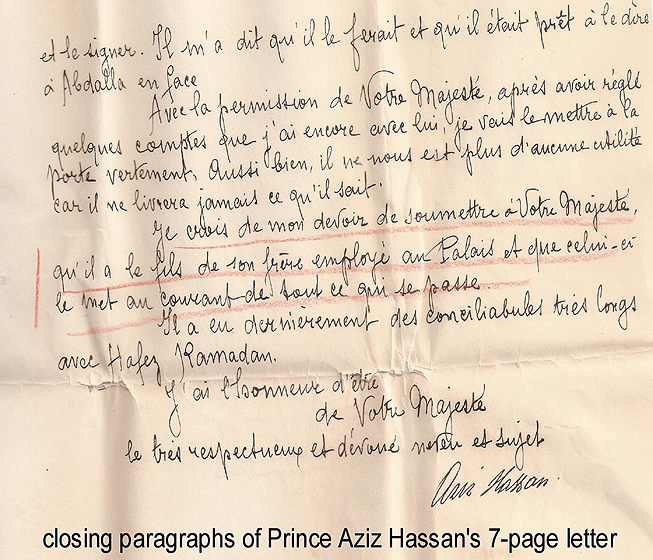 et le signer. Il m'a dit qu'il le ferait et qu'il était prêt à le dire
à Abdalla en face
Avec la permission de Votre Majesté, après avoir réglé
quelques comptes que j'ai encore avec lui, je vais le mettre à la
porte vertement. Aussi bien, il ne nous est plus d'aucune utilité
car il ne livrera jamais ce qu'il sait.
Je crois de mon devoir de soumettre à Votre Majesté,
qu'il a le fils de son frère employé au Palais et que celui-ci
le met au courant de tout ce qui se passe.
Il a eu dernièrement des conciliabules très longs
avec Hafez Ramadan.
J'ai l'honneur d'être
de Votre Majesté
le très respectueux et dévoué neveu et sujet
Aziz Hassan.
closing paragraphs of Prince Aziz Hassan's 7-page letter